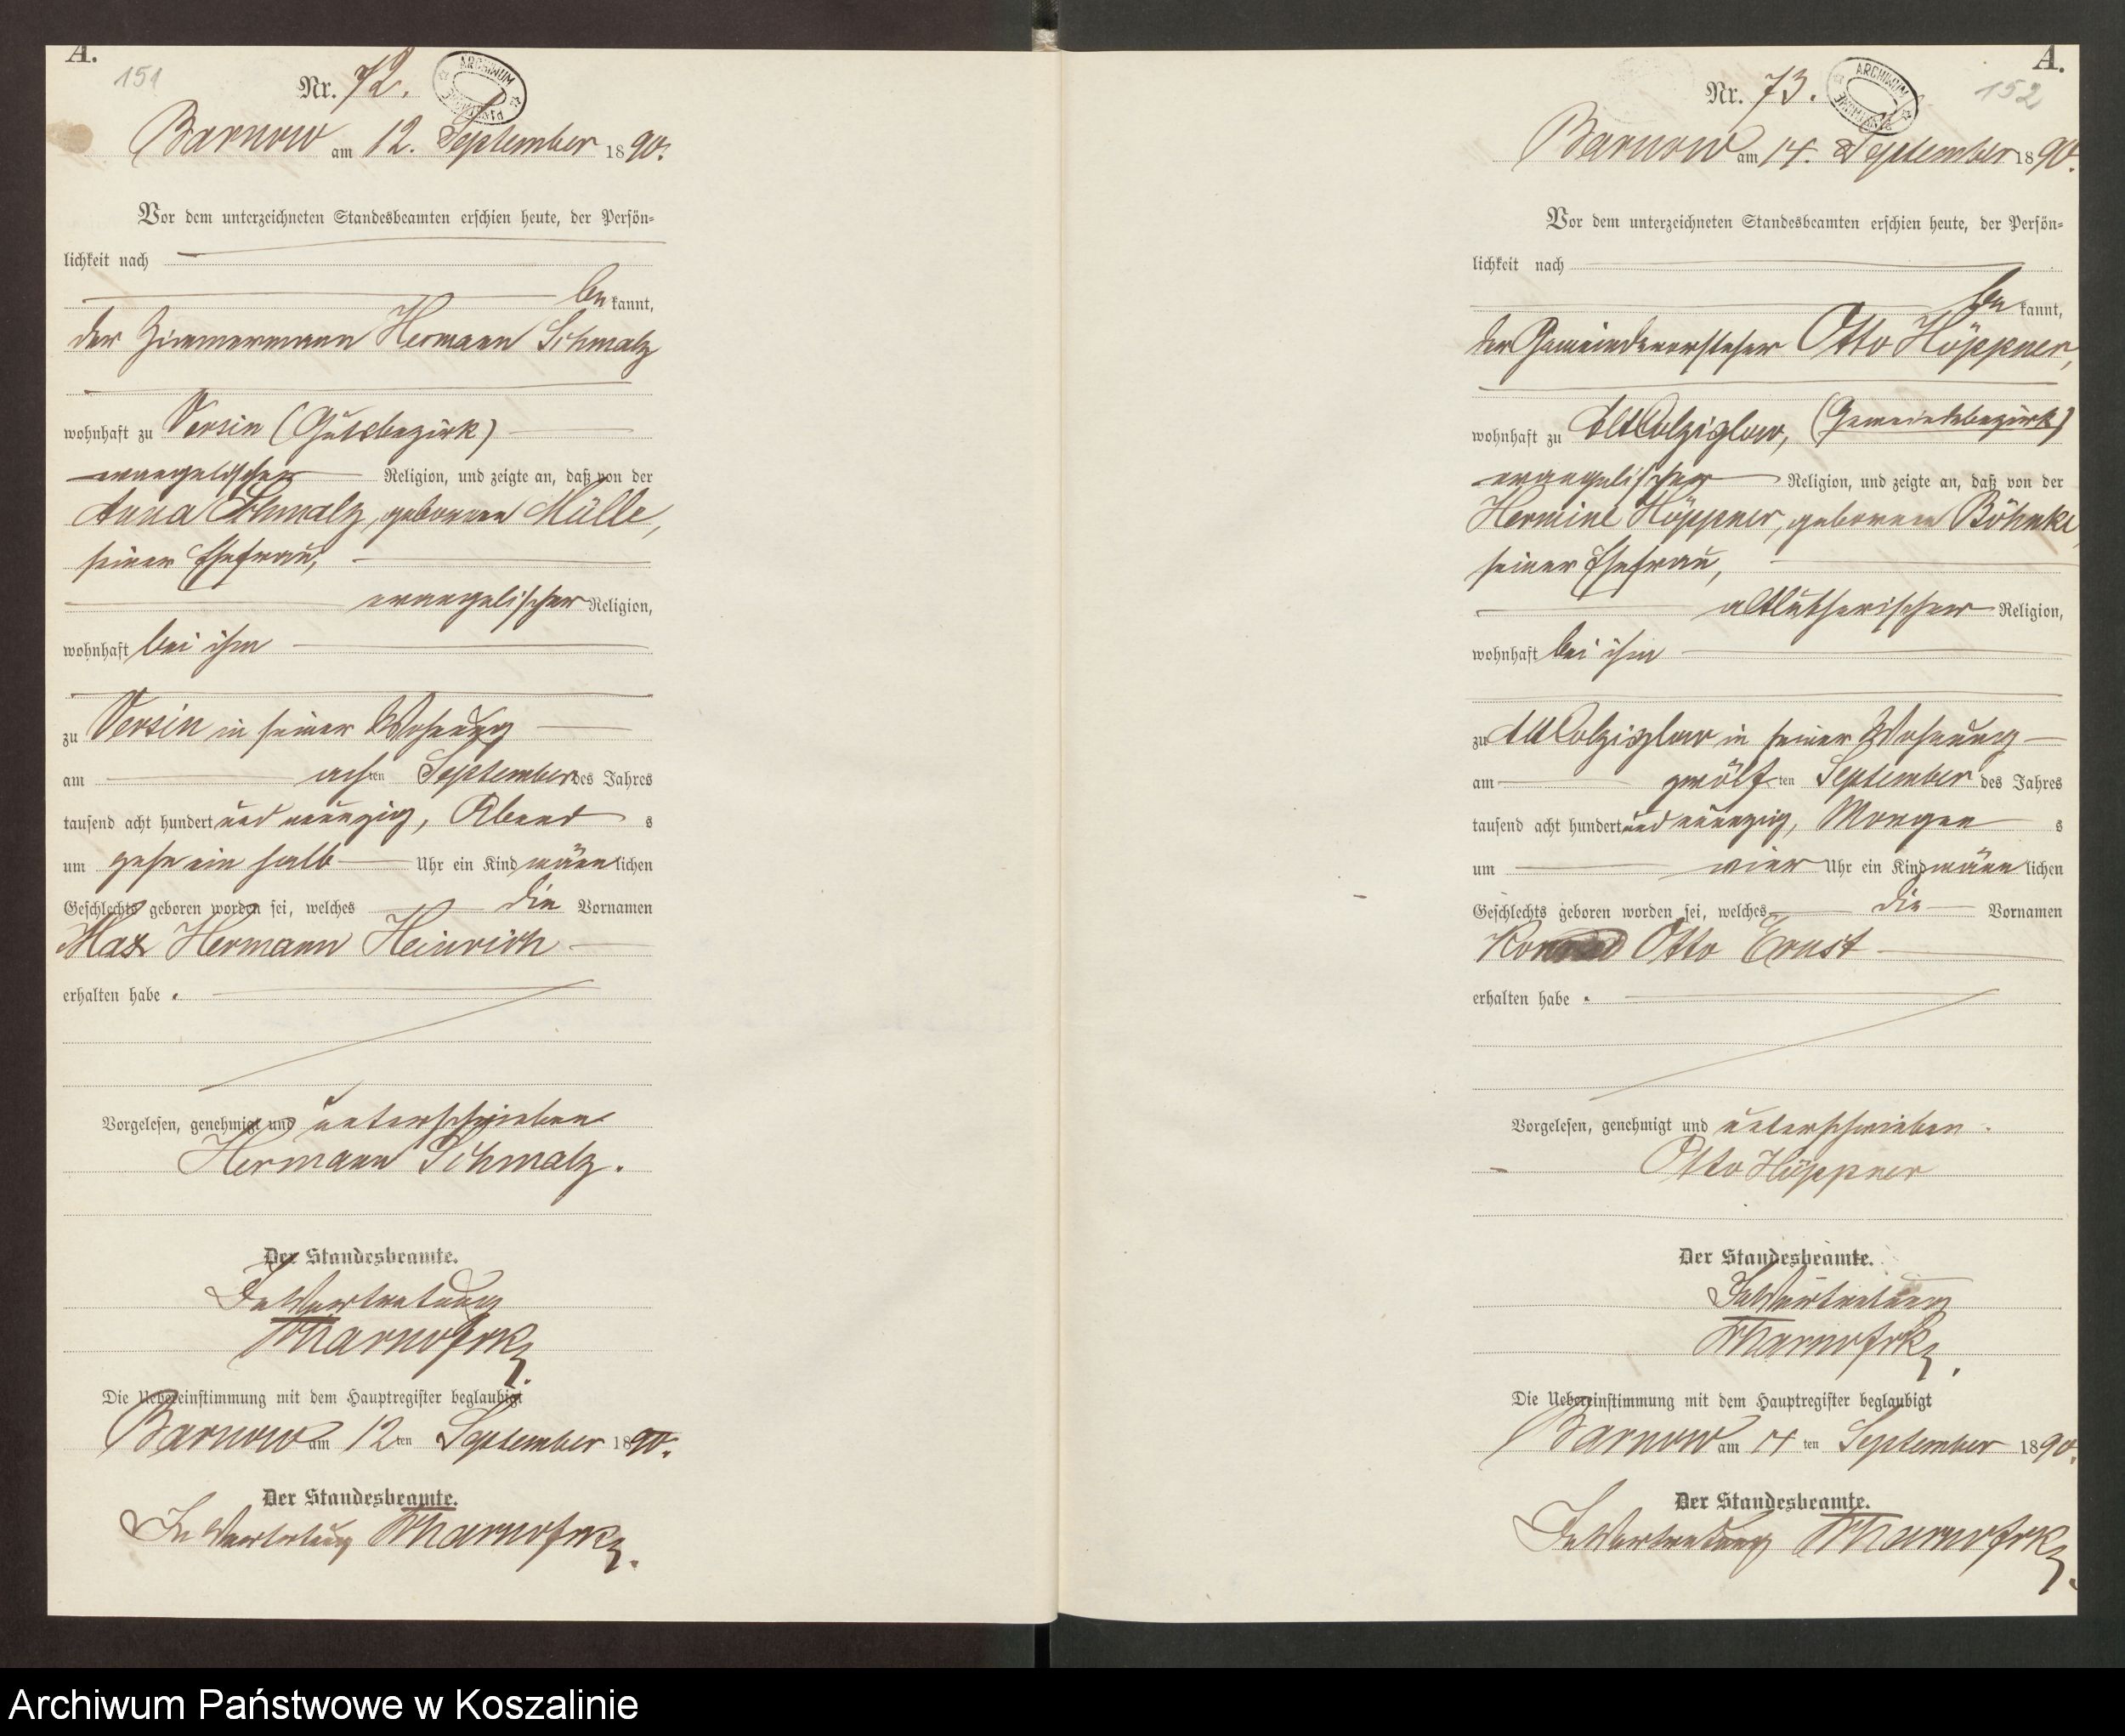 A.
151
Nr. 72.
ARCHIWUM
Barnow am 12. September 1890.
Vor dem unterzeichneten Standesbeamten erschien heute, der Persön-
lichkeit nach
be kannt,
der Zimmermann Hermann Schmalz
wohnhaft zu Versin (Gutsbezirk)
evangelischer Religion, und zeigte an, daß von der
Anna Schmalz, geborenen Mülle,
seiner Ehefrau,
evangelischer Religion,
wohnhaft bei ihm
zu Versin in seiner Wohnung
am achten September des Jahres
tausend acht hundert und neunzig, Abend s
um zehn ein halb Uhr ein Kind männlichen
Geschlechts geboren worden sei, welches die Vornamen
Max Hermann Heinrich
erhalten habe.
Vorgelesen, genehmigt und unterschrieben
Hermann Schmalz.
Der Standesbeamte.
In Vertretung
Die Uebereinstimmung mit dem Hauptregister beglaubigt
Barnow am 12ten September 1890.
Der Standesbeamte.
In Vertretung
A.
152
Nr. 73.
ARCHIWUM
Barnow am 14. September 1890.
Vor dem unterzeichneten Standesbeamten erschien heute, der Persön-
lichkeit nach
be kannt,
der Gemeindevorsteher Otto Höppner,
wohnhaft zu Alt Colziglow, (Gemeindebezirk)
evangelischer Religion, und zeigte an, daß von der
Hermine Höppner, geborenen Böhnke,
seiner Ehefrau,
altlutherischer Religion,
wohnhaft bei ihm
zu Alt Colziglow in seiner Wohnung
am zwölften September des Jahres
tausend acht hundert und neunzig, Morgen s
um vier Uhr ein Kind männlichen
Geschlechts geboren worden sei, welches die Vornamen
Konrad Otto Ernst
erhalten habe.
Vorgelesen, genehmigt und unterschrieben.
Otto Höppner
Der Standesbeamte.
In Vertretung
Die Uebereinstimmung mit dem Hauptregister beglaubigt
Barnow am 14ten September 1890.
Der Standesbeamte.
In Vertretung
Archiwum Państwowe w Koszalinie